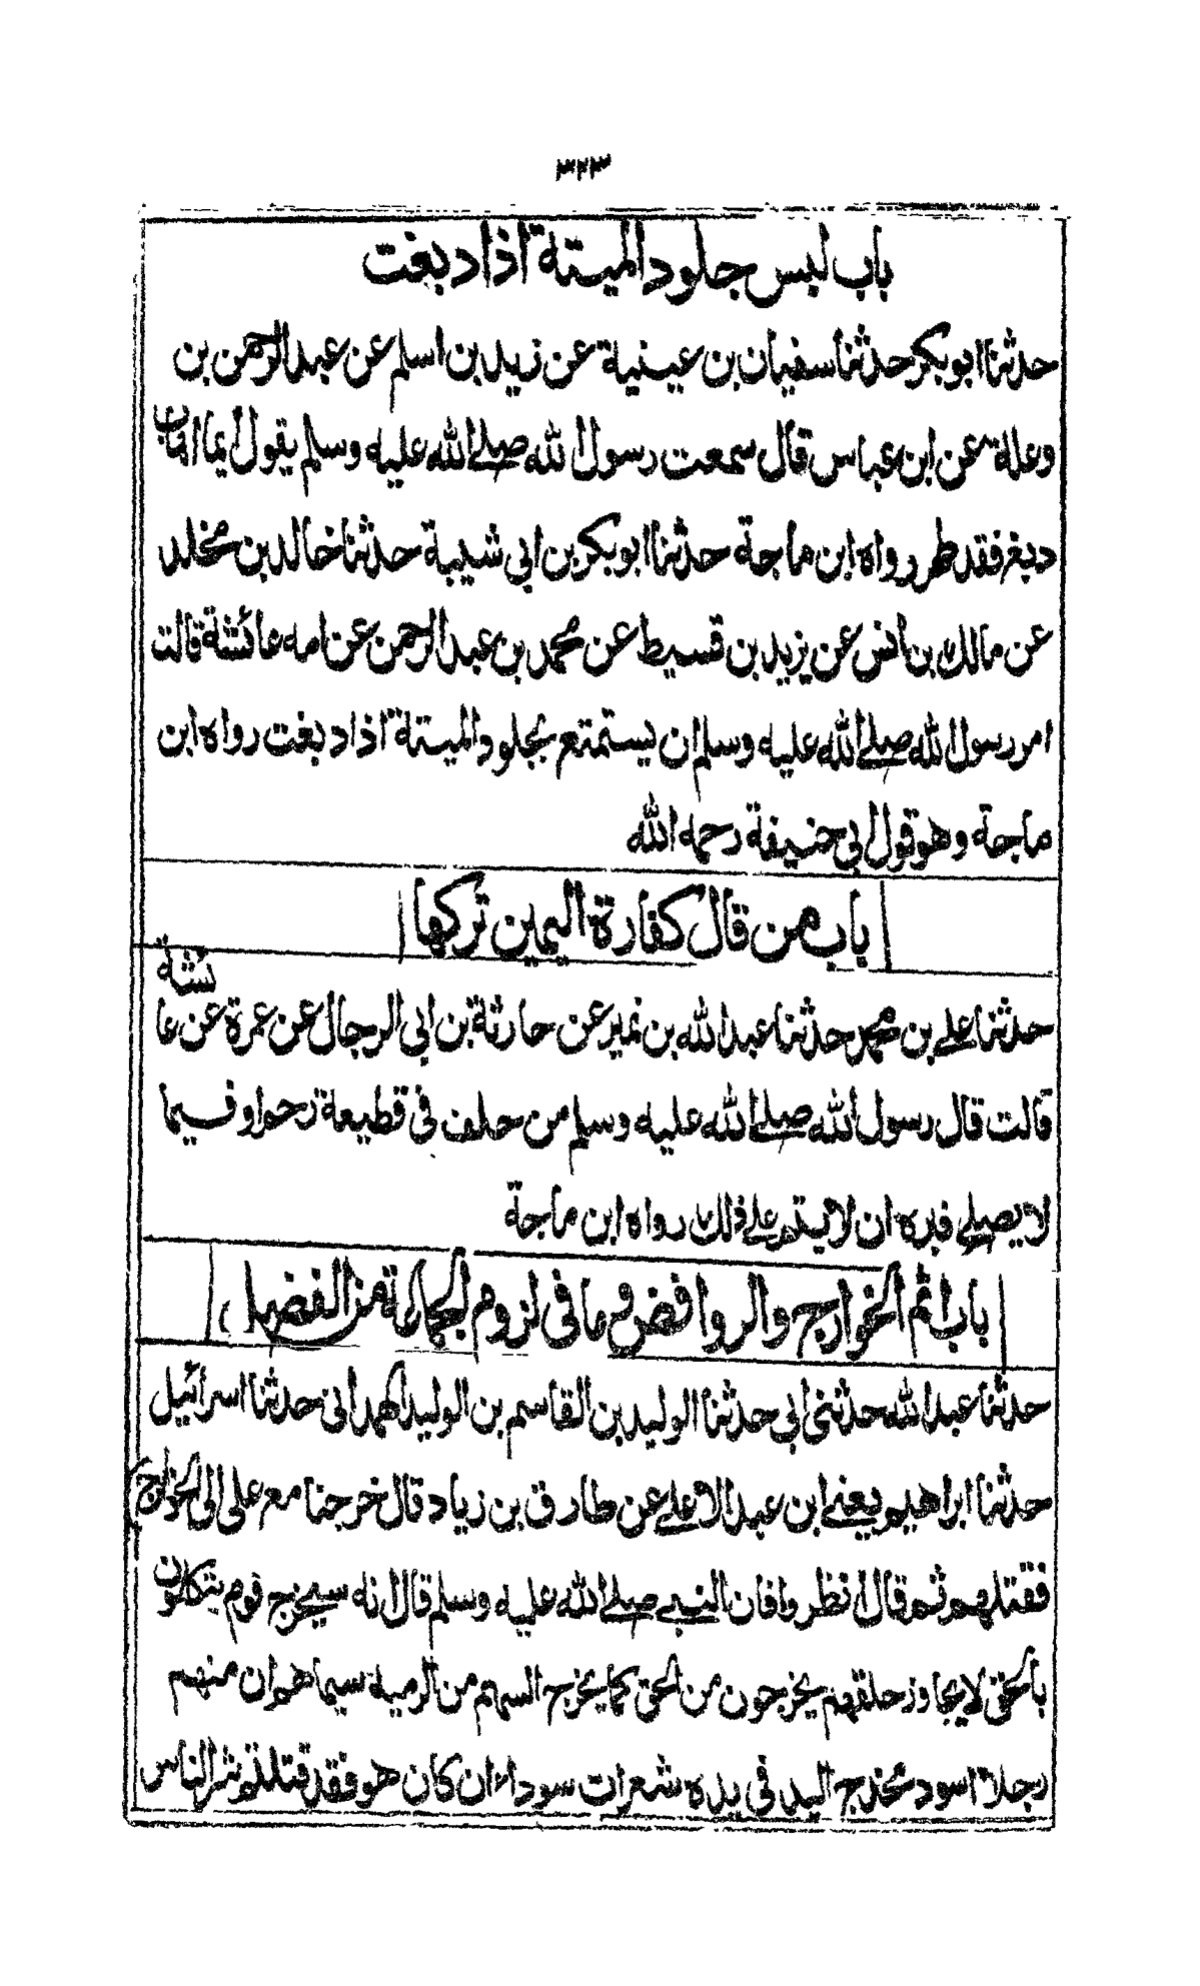 ٣٢٣
باب لبس جلود الميتة اذا دبغت
حدثنا ابو بكر حدثنا سفيان بن عيينة عن زيد بن اسلم عن عبد الرحمن بن
وعلة عن ابن عباس قال سمعت رسول الله صلى الله عليه وسلم يقول ايما اهاب
دبغ فقد طهر رواه ابن ماجة حدثنا ابو بكر بن ابي شيبة حدثنا خالد بن مخلد
عن مالك بن انس عن يزيد بن قسيط عن محمد بن عبد الرحمن عن امه عائشة قالت
امر رسول الله صلى الله عليه وسلم ان يستمتع بجلود الميتة اذا دبغت رواه ابن
ماجة وهو قول ابي حنيفة رحمه الله
باب من قال كفارة اليمين تركها
حدثنا علي بن محمد حدثنا عبد الله بن نمير عن حارثة بن ابي الرجال عن عمرة عن عائشة
قالت قال رسول الله صلى الله عليه وسلم من حلف في قطيعة رحم او فيما
لا يصلح فبره ان لا يتم على ذلك رواه ابن ماجة
باب اثم الخوارج والروافض وما في لزوم الجماعة من الفضل
حدثنا عبد الله حدثني ابي حدثنا الوليد بن القاسم بن الوليد الهمداني حدثنا اسرائيل
حدثنا ابراهيم يعني ابن عبد الاعلى عن طارق بن زياد قال خرجنا مع علي الى الخوارج
فقتلهم ثم قال انظروا فان النبي صلى الله عليه وسلم قال انه سيخرج قوم يتكلمون
بالحق لا يجاوز حلقهم يخرجون من الحق كما يخرج السهم من الرمية سيماهم ان منهم
رجلا اسود مخدج اليد في يده شعرات سود ان كان هو فقد قتلتم شر الناس